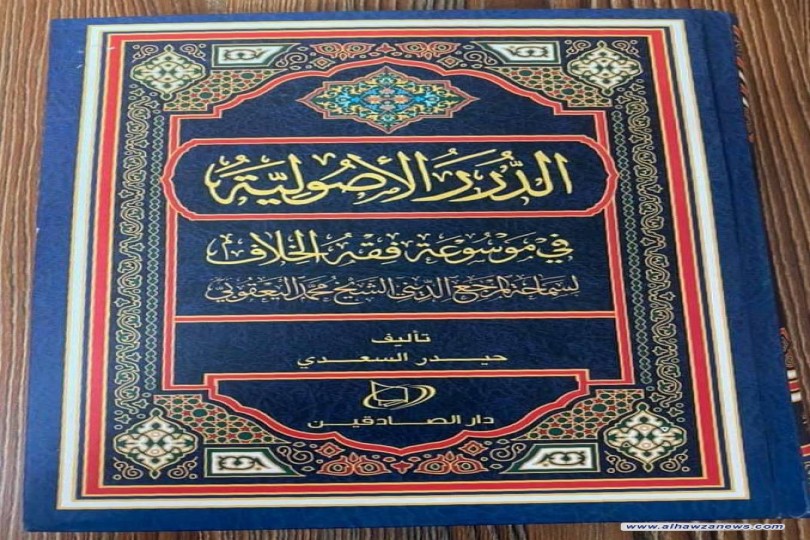 الدُّرَرُ الأُصُولِيَّةُ
في مَوْسُوعَة فِقْهُ الخِلَاف
لسماحة المرجع الديني الشيخ محمد اليعقوبي
تأليف
حيدر السعدي
دار الصادقين
www.alhawzanews.com